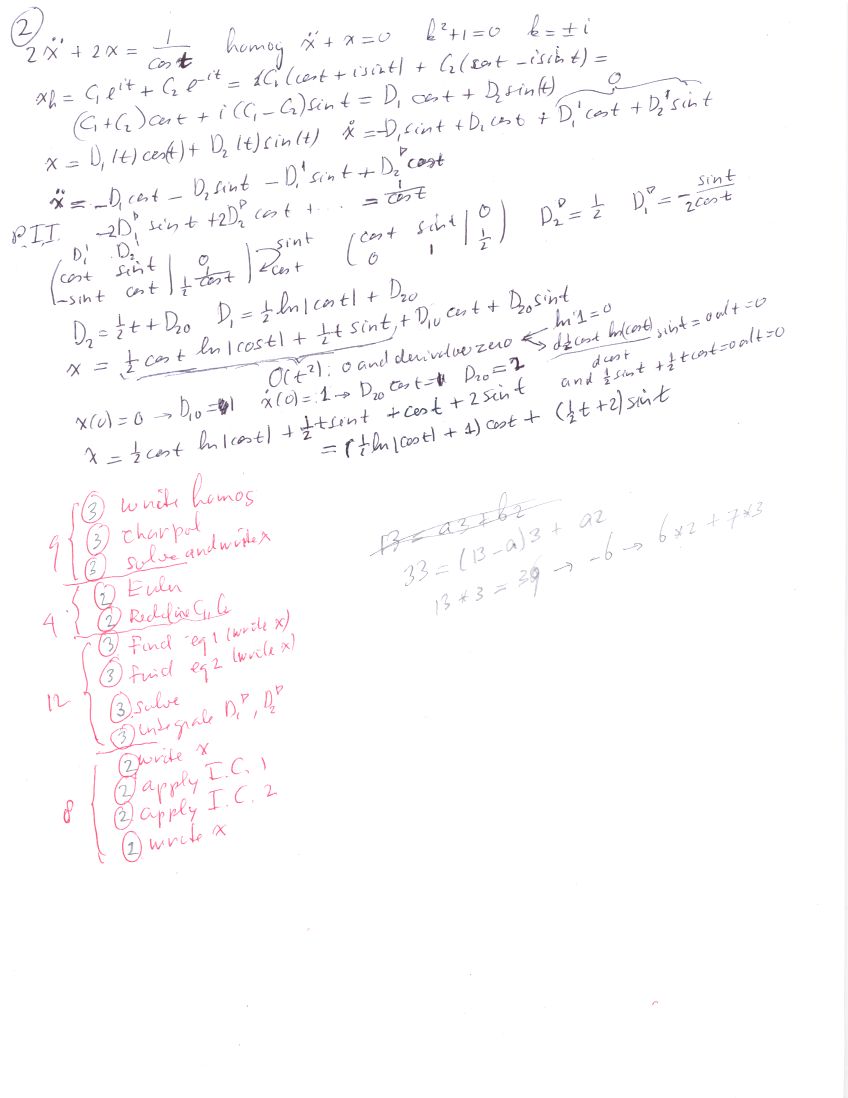 2
2ẍ + 2x = 1/cost homog ẍ + x = 0 k² + 1 = 0 k = ± i
xh = C₁e^it + C₂e^-it = C₁(cost + isint) + C₂(cost - isint) =
(C₁+C₂)cost + i(C₁-C₂)sint = D₁ cost + D₂sin(t) 0
x = D₁(t)cos(t) + D₂(t)sin(t) ẋ = -D₁sint + D₂cost + D₁'cost + D₂'sint
ẍ = -D₁cost - D₂sint - D₁'sint + D₂'cost
P.I.I. -2D₁' sint + 2D₂' cost + ... = 1/cost
D₁' D₂'
(cost sint | 0 | sint (cost sint | 0) D₂' = 1/2 D₁' = - sint/2cost
-sint cost | 1/2 1/cost | cost 0 1 | 1/2
D₂ = 1/2t + D₂₀ D₁ = 1/2 ln|cost| + D₂₀
x = 1/2 cost ln|cost| + 1/2t sint + D₁₀ cost + D₂₀sint
O(t²): 0 and derivative zero ln1=0
d1/2cost ln(cost)/dcost sint = 0 at t=0
and 1/2sint + 1/2tcost = 0 at t=0
x(0) = 0 → D₁₀ = 1 ẋ(0) = 1 → D₂₀ cost = D₂₀ = 2
x = 1/2cost ln|cost| + 1/2tsint + cost + 2sint
= (1/2ln|cost| + 1)cost + (1/2t + 2)sint
9 3 write homog
3 charpol
3 solve and write x
4 2 Euler
2 Redefine C₁, C₂
12 3 Find eq1 (write x)
3 find eq2 (write x)
3 solve
3 integrate D₁', D₂'
8 2 write x
2 apply I.C. 1
2 apply I.C. 2
2 write x
13 = a3 + b2
33 = (13-a)3 + a2
13*3 = 39 → -6 → 6*2 + 7*3